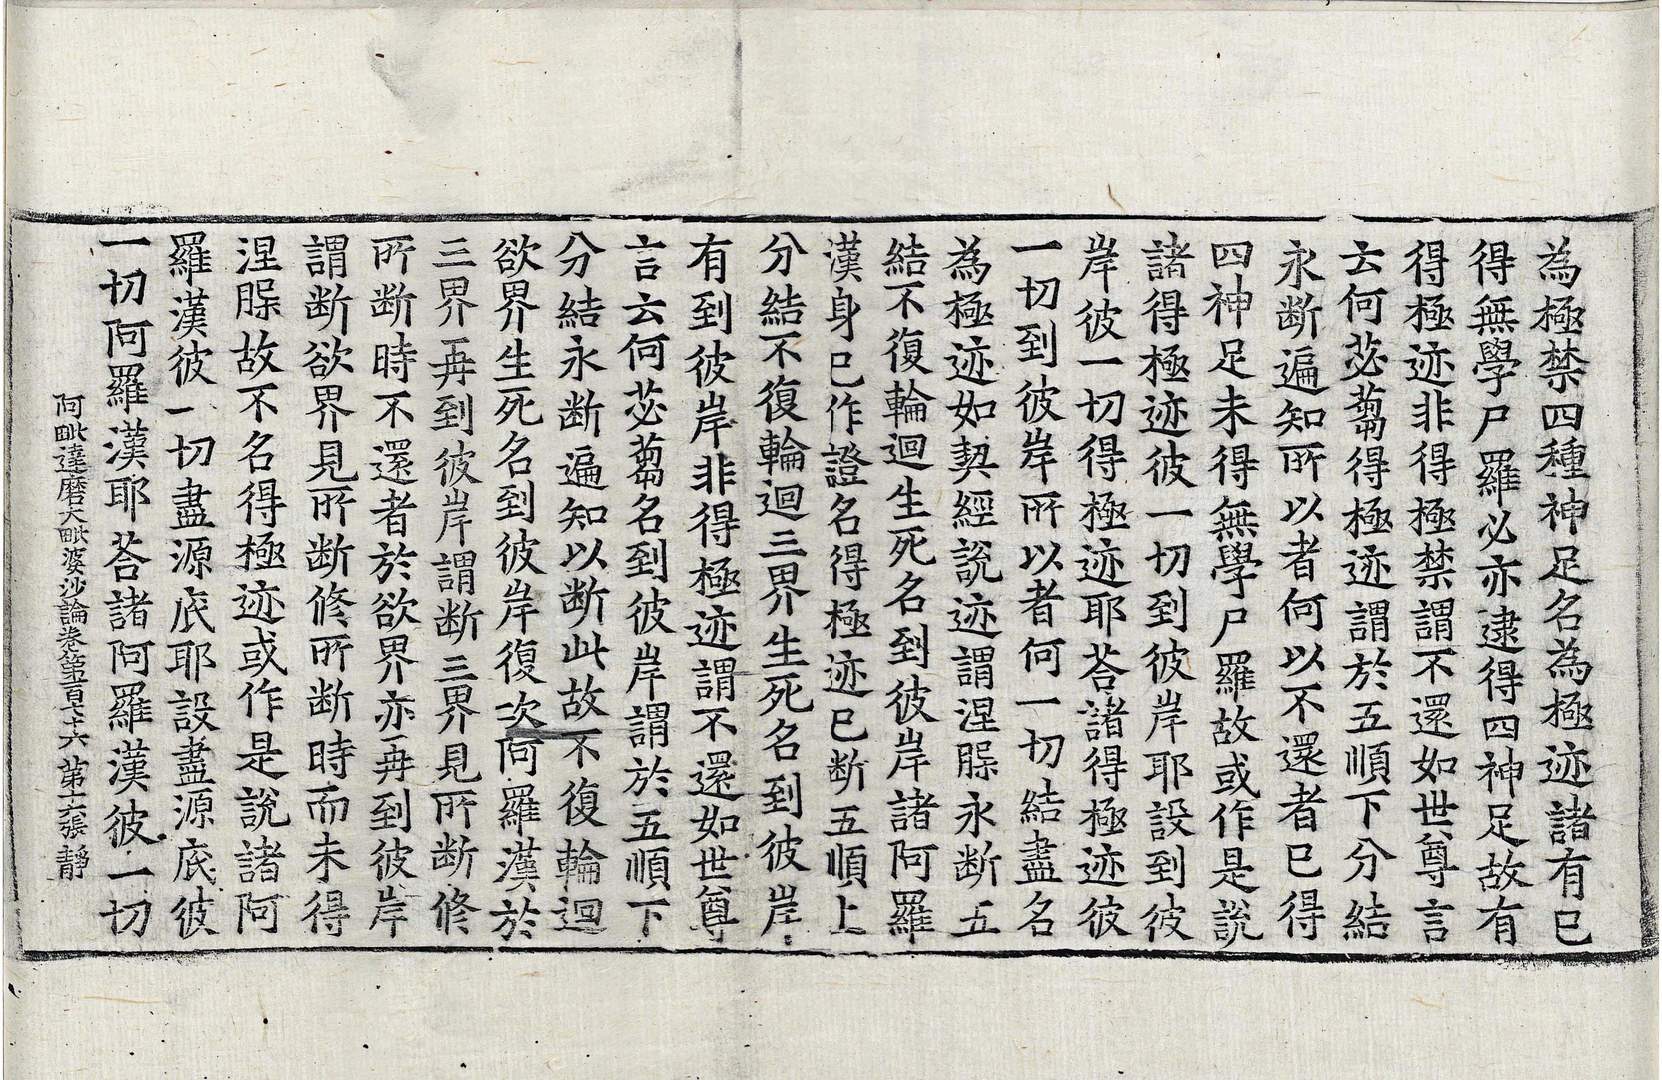 為極禁四種神足名為極迹諸有已
得無學尸羅必亦逮得四神足故有
得極迹非得極禁謂不還如世尊言
云何苾芻得極迹謂於五順下分結
永断遍知所以者何以不還者已得
四神足未得無學尸羅故或作是說
諸得極迹彼一切到彼岸耶設到彼
岸彼一切得極迹耶荅諸得極迹彼
一切到彼岸所以者何一切結盡名
為極迹如契經說迹謂涅槃永断五
結不復輪迴生死名到彼岸諸阿羅
漢身已作證名得極迹已断五順上
分結不復輪迴三界生死名到彼岸
有到彼岸非得極迹謂不還如世尊
言云何苾芻名到彼岸謂於五順下
分結永断遍知以断此故不復輪迴
欲界生死名到彼岸復次阿羅漢於
三界再到彼岸謂断三界見所断修
所断時不還者於欲界亦再到彼岸
謂断欲界見所断修所断時而未得
涅槃故不名得極迹或作是說諸阿
羅漢彼一切盡源底耶設盡源底彼
一切阿羅漢耶荅諸阿羅漢彼一切
阿毗達磨大毗婆沙論卷第百七十六 第十六張 靜